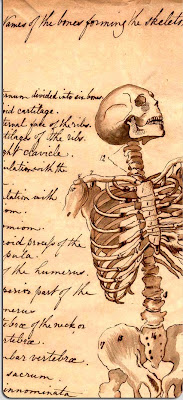 Names of the bones forming the skeleto
anum divided into six bones
oid cartilage.
ternal ends of the ribs.
tilages of the ribs.
ght clavicle.
ulation with the
m.
lation with
om.
omion.
oid process of the
pula.
of the humerus
perior part of the
merus
ebræ of the neck or
rtebræ.
bar vertebræ.
sacrum.
innominata
12
7
8